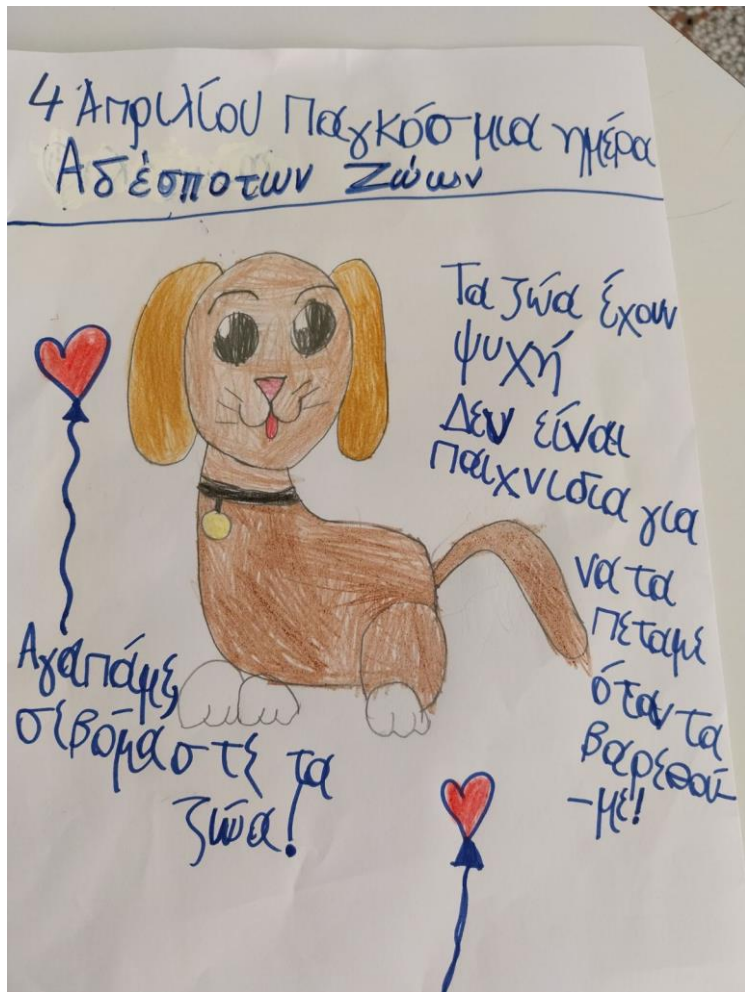 4 Απριλίου Παγκόσμια ημέρα
Αδέσποτων Ζώων
Τα ζώα έχουν
ψυχή
Δεν είναι
παιχνίδια για
να τα
πεταμε
όταν τα
βαρεθού-
-με!
Αγαπάμε,
σεβόμαστε τα
ζώα!